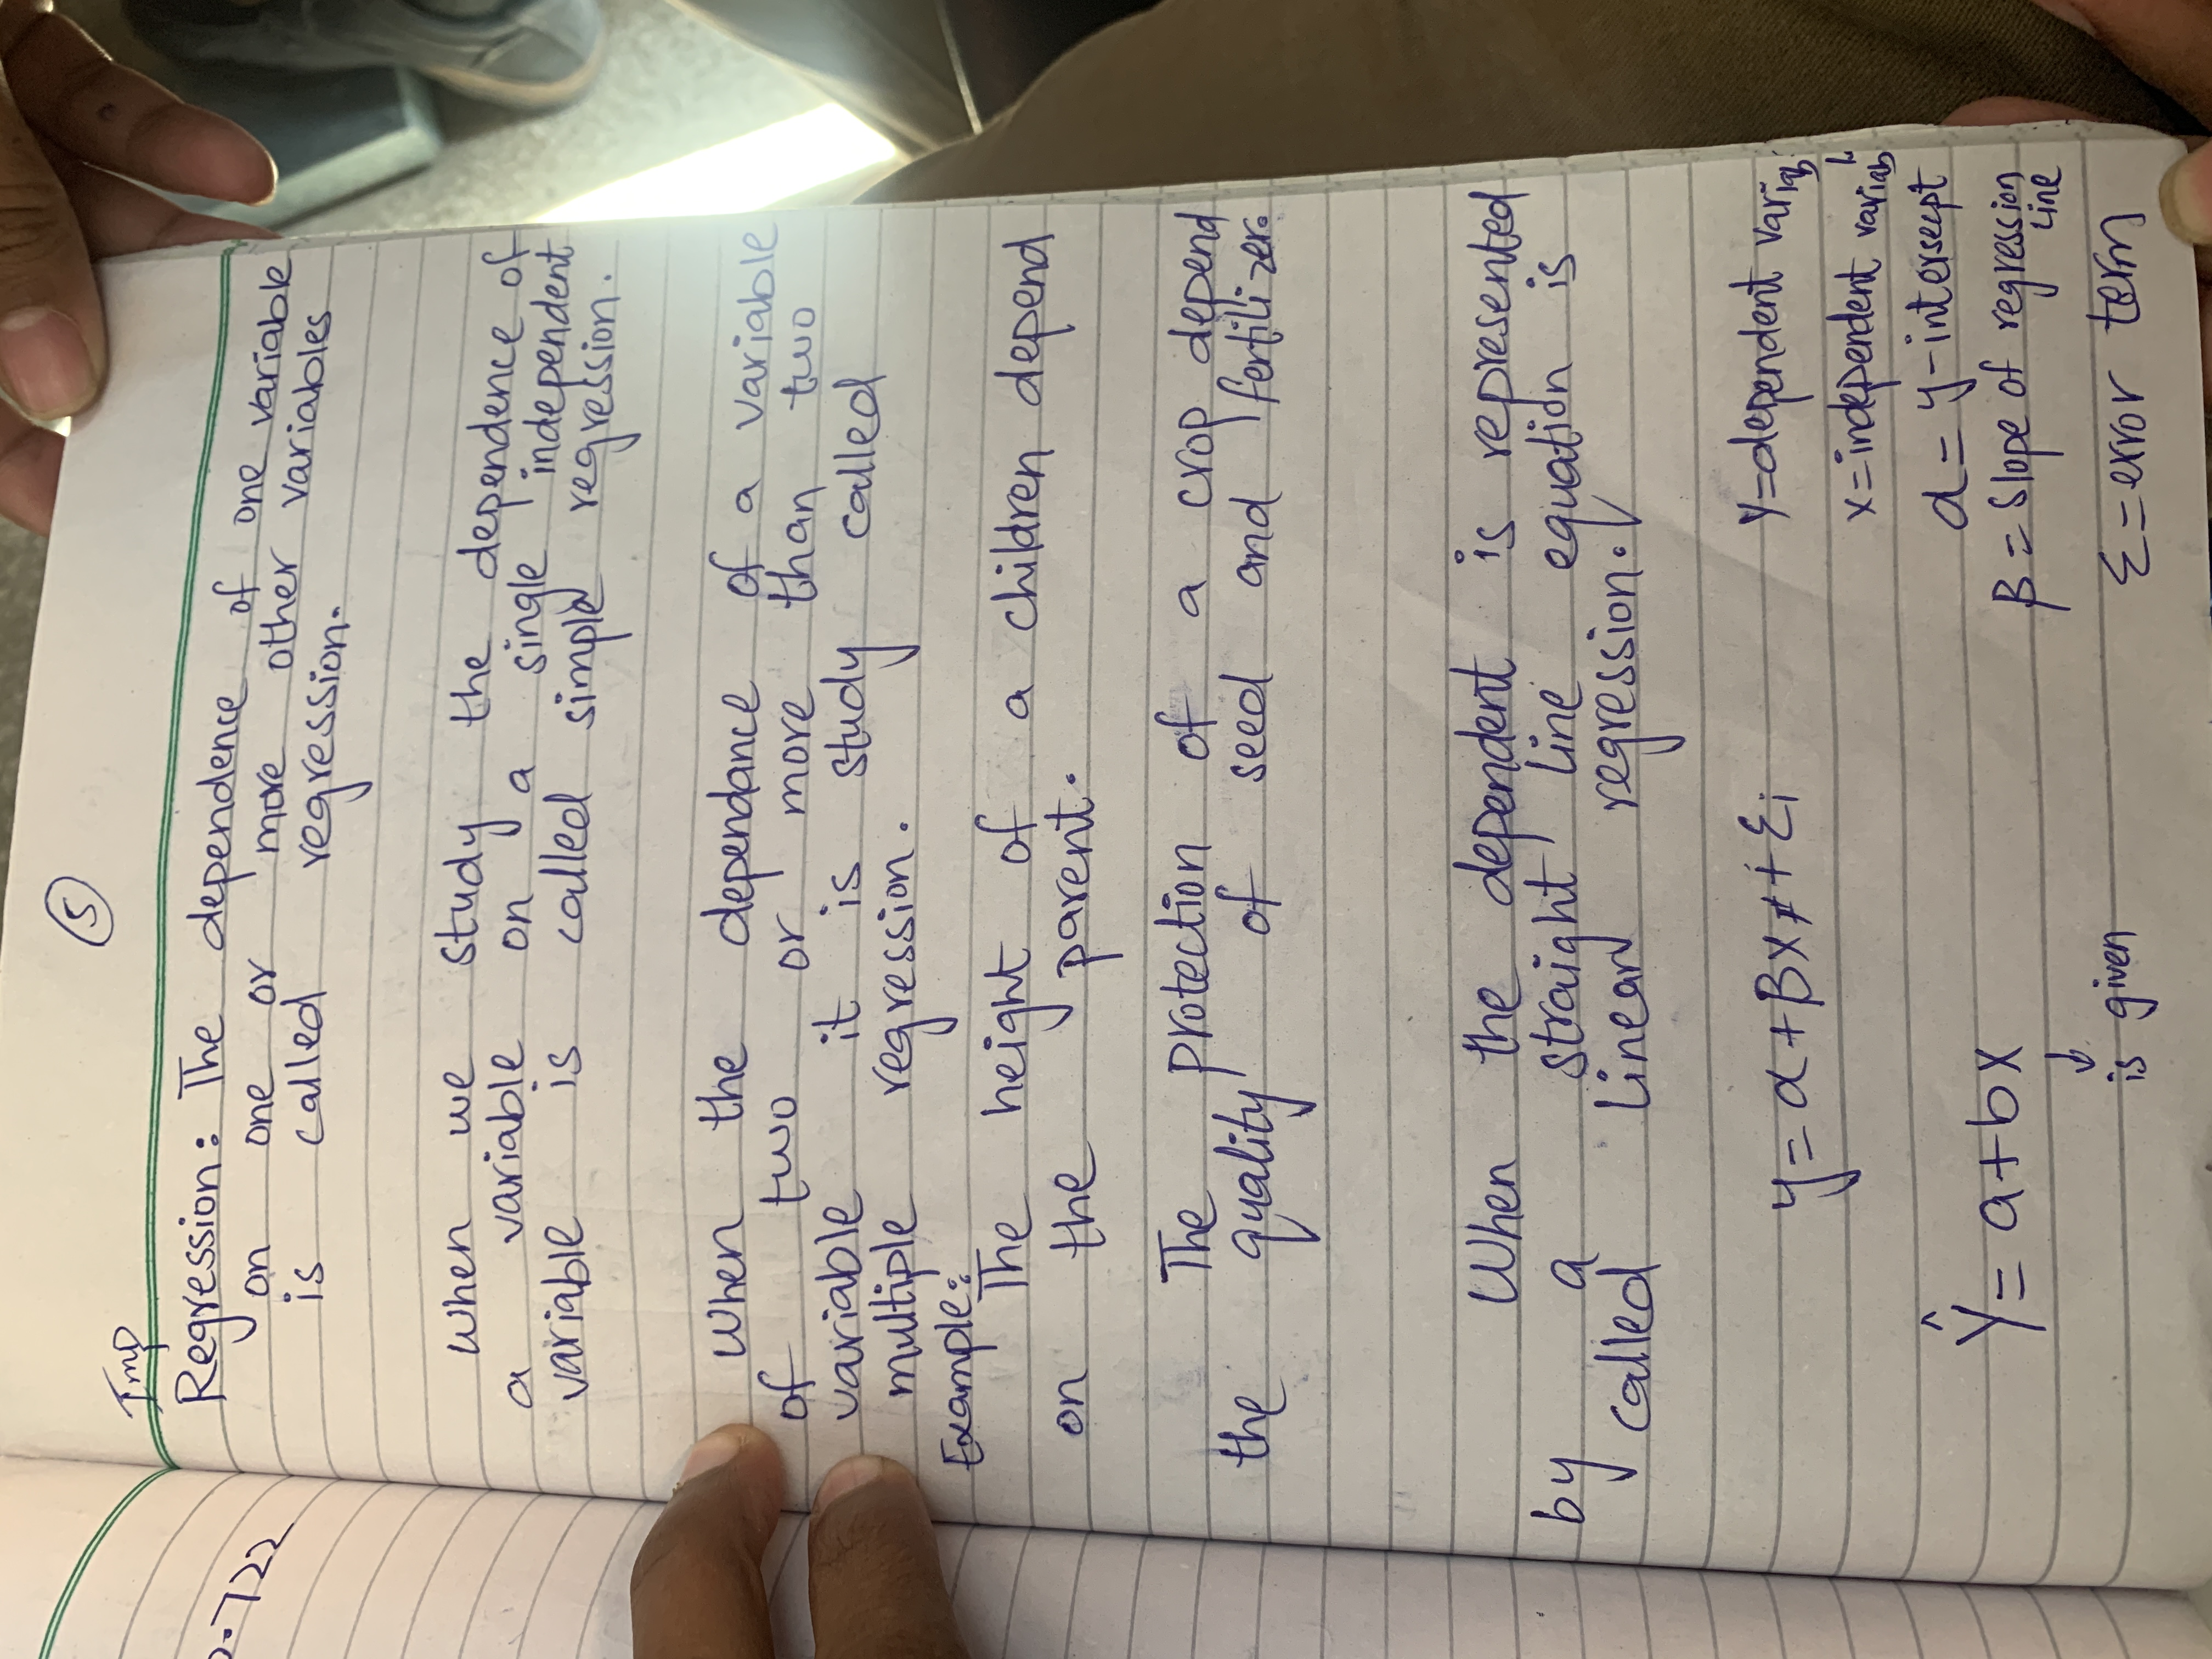 5
Imp
Regression: The dependence of one variable
on one or more other variables
is called regression.
when we study the dependence of
a variable on a single independent
variable is called simple regression.
When the dependance of a variable
of two or more than two
variable it is study called
multiple regression.
Example:
The height of a children depend
on the parent.
The protection of a crop depend
the quality of seed and fertilizer.
When the dependent is represented
by a straight line equation is
called linear regression.
y = α + βx + εi
Y=dependent variab
x=independent variab
α = y-intersept
Ŷ = a+bx
β = Slope of regression
line
↓
is given
ε=error term
0.722